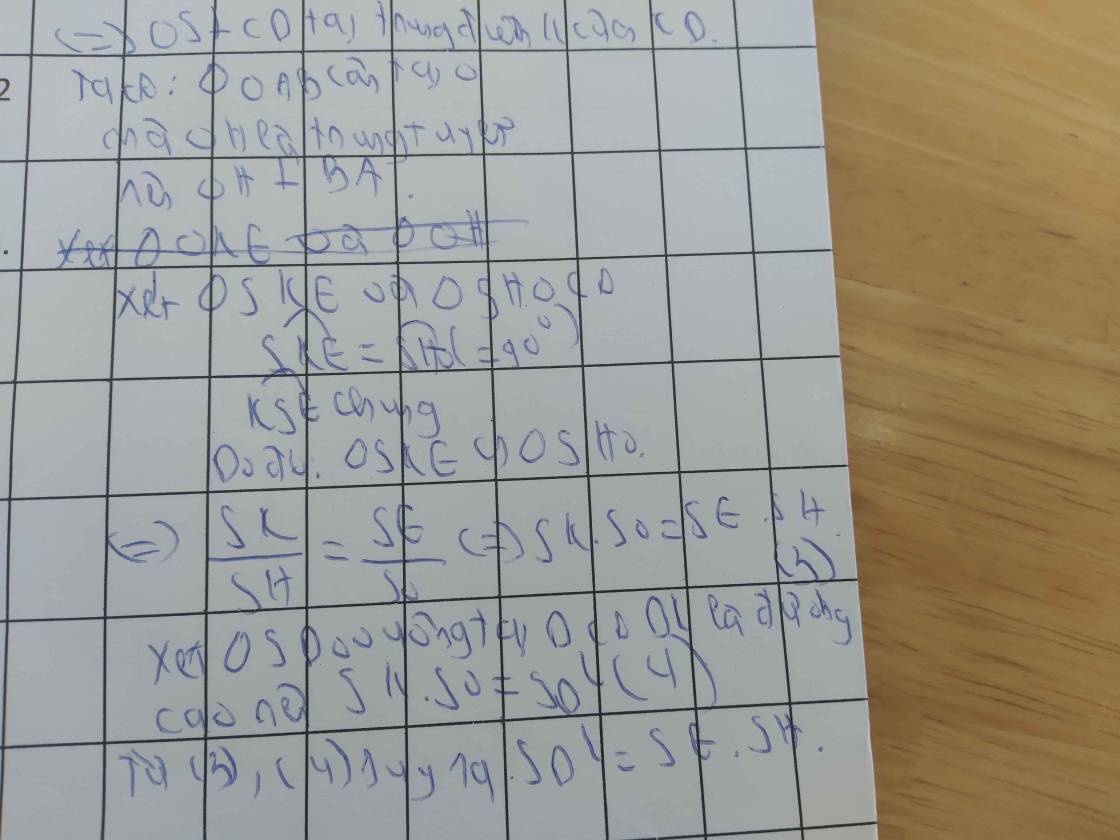 <=> OS⊥CD tại trung điểm K của CD.
2
Ta có: ΔOAB cân tại O
mà OH là trung tuyến
nên OH ⊥ BA.
Xét ΔOKE và ΔOH
Xét ΔSKE và ΔSHO có
SKE = SHO = 90°
KSE chung
Do đó: ΔSKE ∽ ΔSHO.
<=> SK/SH = SE/SO <=> SK.SO = SE.SH
(3)
Xét ΔSDO vuông tại D có DK là đường
cao nên SK.SO = SD² (4)
Từ (3), (4) suy ra SD² = SE.SH.